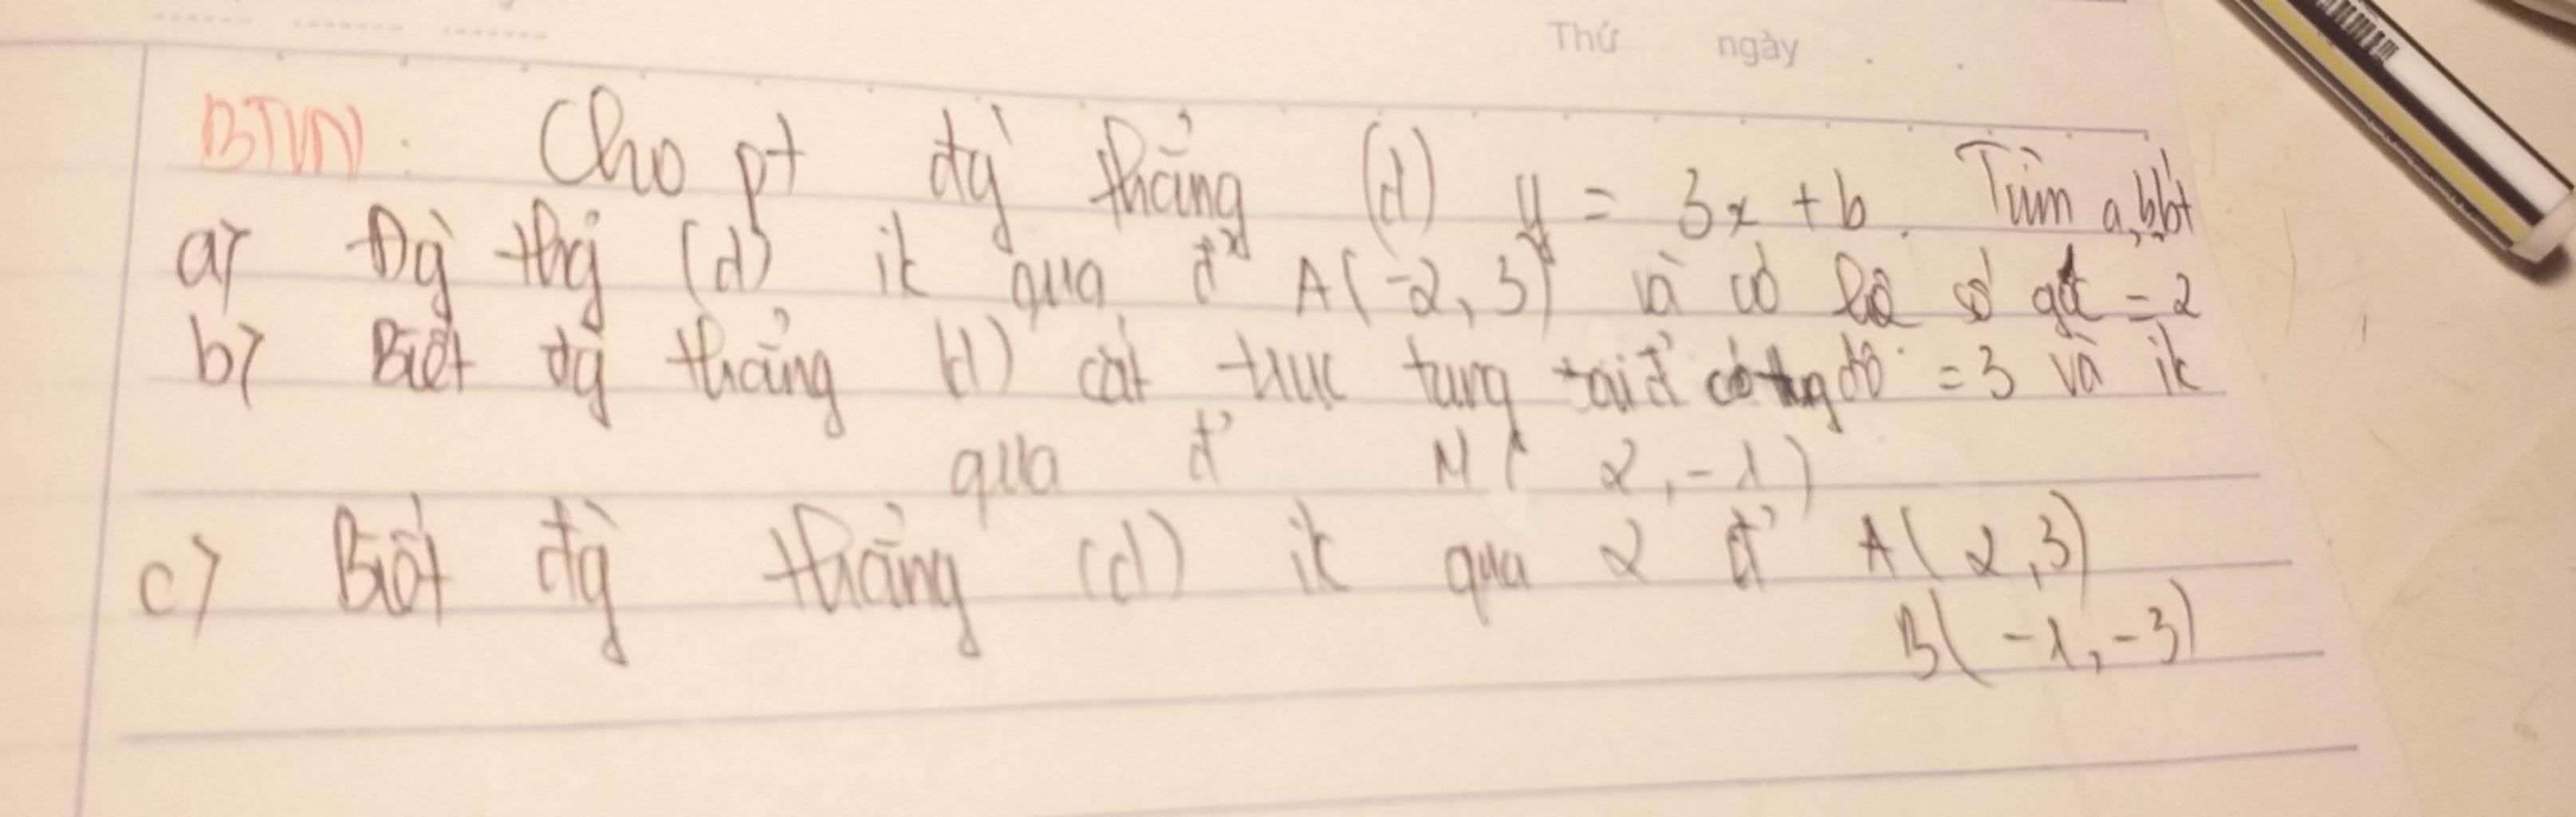 Thứ ngày
BTVN: Cho pt đg` thẳng (d) y = 3x + b. Tìm a, b bt
a) Đg` thg̉ (d) đi qua đ' A(-2, 3) và có hệ số góc = 2
b) Biết đg` thẳng (d) cắt trục tung tại đ' có tung độ = 3 và đi
qua đ' M( 2, -1)
c) Biết đg` thẳng (d) đi qua 2 đ' A( 2, 3)
B( -1, -3)